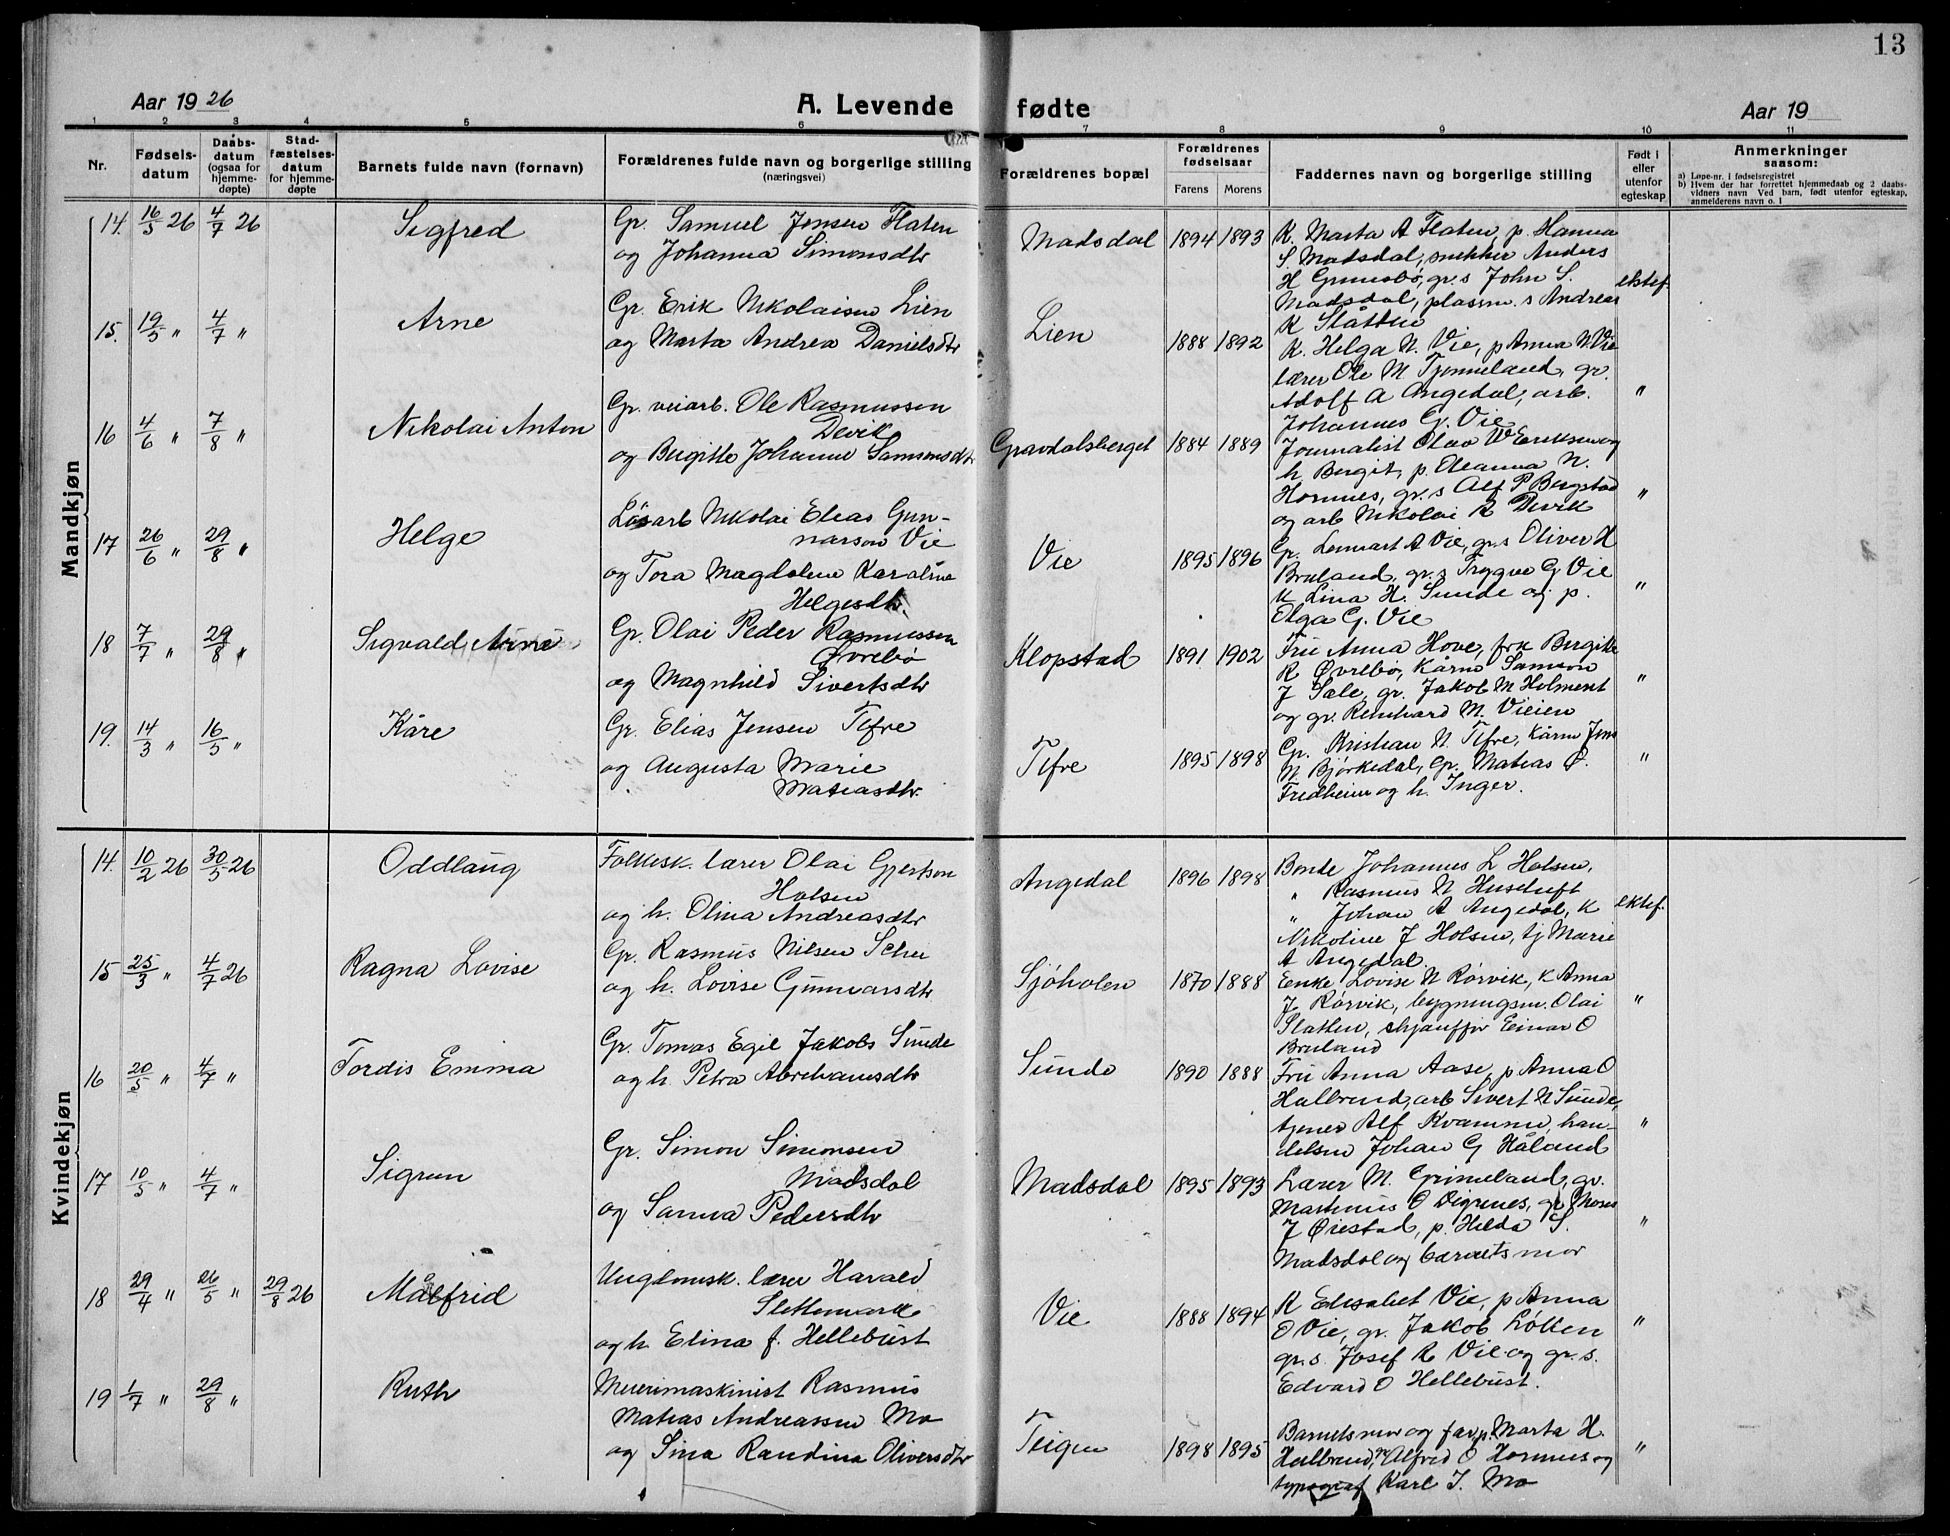 13
Aar 1926 A. Levende fødte Aar 19
1 2 3 4 5 6 7 8 9 10 11
Nr. Fødsels-datum Daabs-datum (ogsaa for hjemme-døpte) Stad-fæstelses-datum for hjemme-døpte Barnets fulde navn (fornavn) Forældrenes fulde navn og borgerlige stilling (næringsvei) Forældrenes bopæl Forældrenes fødselsaar Farens Morens Faddernes navn og borgerlige stilling Født i eller utenfor egteskap Anmerkninger saasom:
a) Løpe-nr. i fødselsregistret
b) Hvem der har forrettet hjemmedaab og 2 daabs-
vidners navn Ved barn, født utenfor egteskap,
anmelderens navn o. l
Mandkjøn
14. 16/5 26 4/7 26 Sigfred Gr. Samuel Jensen Flaten
og Johanna Simonsdtr
Madsdal 1894 1893 K. Marta A Flaten, p. Hanna
S. Madsdal, snekker Anders
H Grimsbø, gr. s John S. ektef.
Madsdal, plassm. s Andreas
K Slåtten
15. 19/5 " 4/7 " Arne Gr. Erik Nikolaisen Lien
og Marta Andrea Danielsdtr
Lien 1888 1892 K. Helga N. Vie, p Anna N. Vie
lærer Ole M Tjønneland, gr.
Adolf A Angedal, arb. "
Johannes G. Vie
16 4/6 " 7/8 " Nikolai Anton Gr. veiarb. Ole Rasmussen
Devik
og Birgitte Johanne Samsonsdtr
Gravdalsberget 1884 1889 Journalist Olav W Eriksen og
h Bergit, p. Oleanna N.
Hornnes, gr. s Alf P Bergstad "
og arb Nikolai R Devik
17 26/6 " 29/8 " Helge Løsarb Nikolai Elias Gun-
narson Vie
og Tora Magdalene Karoline
Helgesdtr.
Vie 1895 1896 Gr. Lennart A Vie, gr. s Oliver H
Bruland, gr. s Trygve G Vie
K Lina H. Sunde og p. "
Olga G. Vie
18 7/7 " 29/8 " Sigvald Arne Gr. Olai Peder Rasmussen
Øvrebø
og Magnhild Sivertsdtr
Klopstad 1891 1902 Fru Anna Hove, frk Bergitte
R Øvrebø, Kårm Samson
J Sæle, gr. Jakob M Holmset "
og gr. Reinhard M. Vieien
19. 14/3 " 16/5 " Kåre Gr. Elias Jensen Tefre
og Augusta Marie
Matiasdtr.
Tefre 1895 1898 Gr. Kristian N. Tefre, Kårm Jens
N Bjørkedal, Gr. Matias O. "
Fredheim og h. Inger.
Kvindekjøn
14. 10/2 26 30/5 26 Oddlaug Folkesk. lærer Olai Gjertson
Holsen
og h. Olina Andreasdtr
Angedal 1896 1898 Bonde Johannes L Holsen,
" Rasmus N Husetuft
" Johan A Angedal, K ektef.
Nikoline J Holsen, tj Marie
A Angedal.
15 25/3 " 4/7 26 Ragna Lovise Gr. Rasmus Nilsen Schei
og h. Lovise Gunnarsdtr
Sjøholen 1870 1888 Enke Lovise N Rørvik, K Anna
J Rørvik, bygningsm. Olai "
Slåtten, skjauffør Einar O
Bruland
16 20/5 " 4/7 " Tordis Emma Gr. Tomas Egil Jakobs Sunde
og h. Petra Abrahamsdtr
Sunde 1890 1888 Fru Anna Aase, p Anna O
Halbrend, arb Sivert N Sunde,
tjener Alf Kvamme, han- "
delsm Johan G Håland
17 10/5 " 4/7 " Sigrun Gr. Simon Simonsen
Madsdal
og Sanna Pedersdtr
Madsdal 1895 1893 Lærer M. Grimeland, gr.
Martinus O Digrenes, gr Moses
J Øiestad, p. Hilda S. "
Madsdal og barnets mor
18 29/4 " 26/5 " 29/8 26 Målfrid Ungdomsk. lærer Harald
Slettemark
og h Elina f. Hellebust
Vie 1888 1894 K Elisabet Vie, p Anna
O Vie, gr. Jakob Løkken "
gr. s. Josef R Vie og gr. s.
Edvard O Hellebust.
19 1/7 " 29/8 " Ruth Meierimaskinist Rasmus
Matias Andreassen Mo
og Sina Randina Oliversdtr
Teigen 1898 1895 Barnets mor og far, p. Marta H.
Halbrend, gr Alfred O Hornnes og "
typograf Karl J. Mo